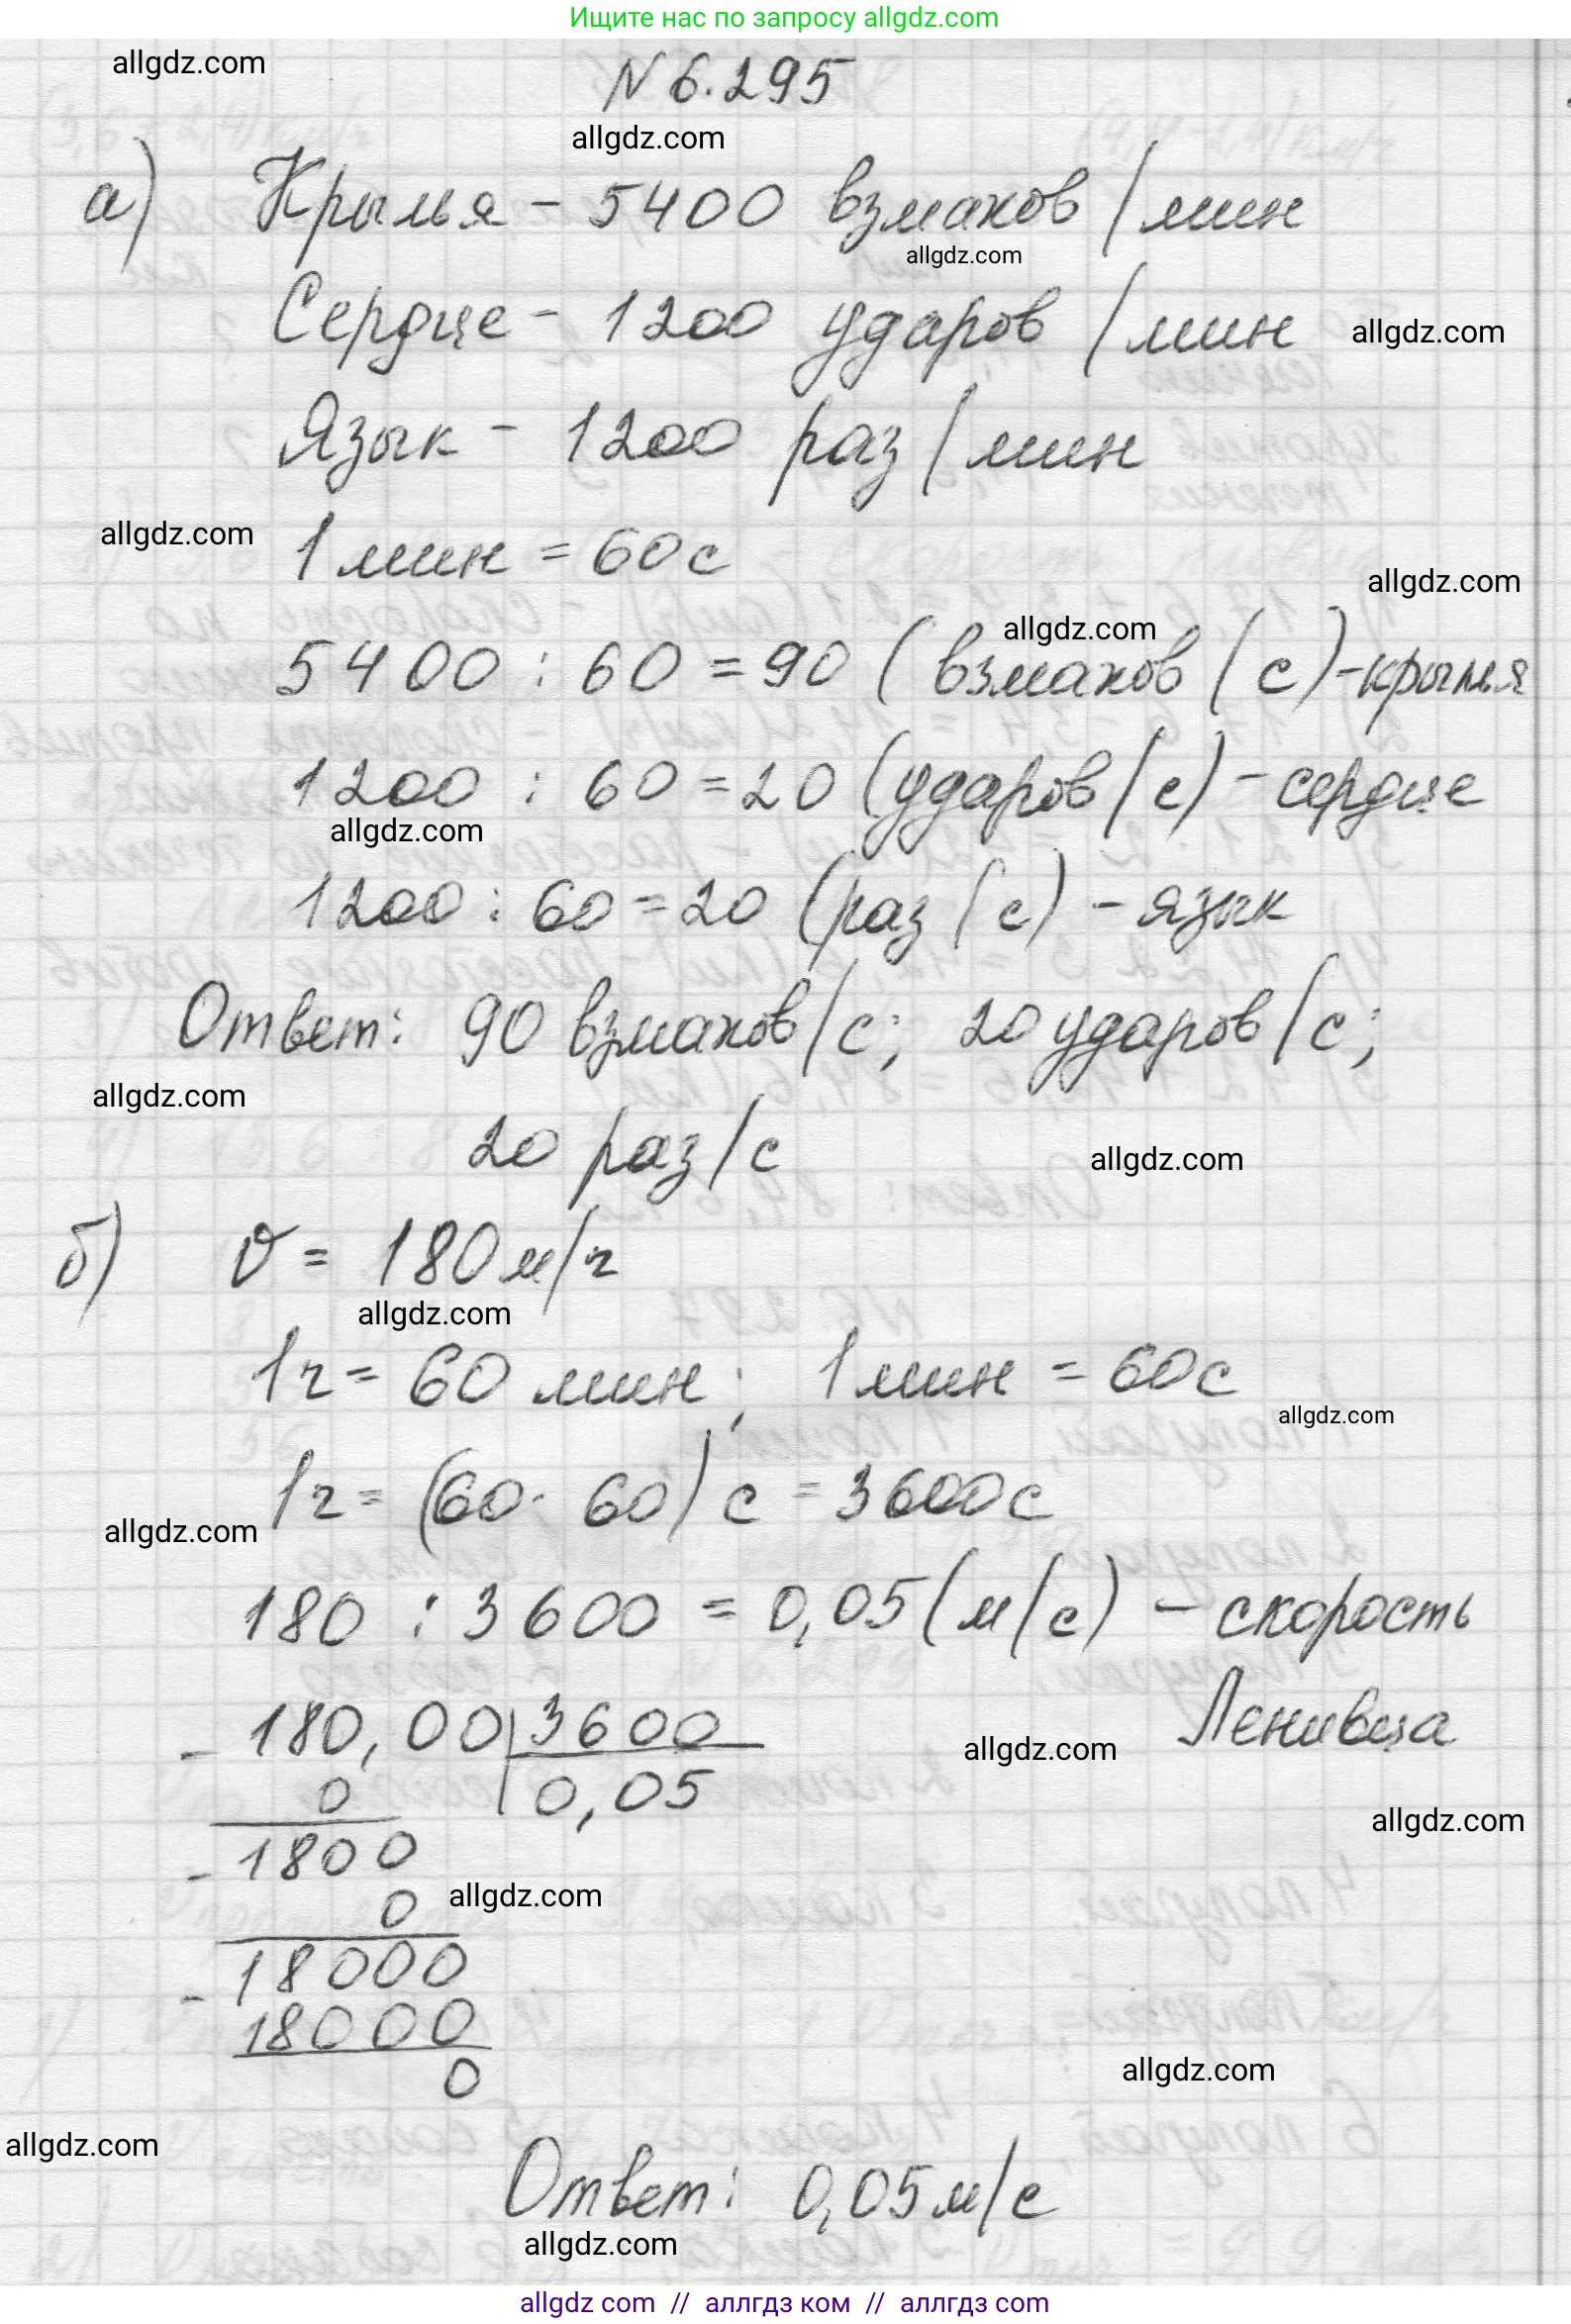 Ищите нас по запросу allgdz.com
allgdz.com
N 6.295
allgdz.com
а) Крылья - 5400 взмахов / мин
allgdz.com
Сердце - 1200 ударов / мин
allgdz.com
Язык - 1200 раз / мин
allgdz.com
1 мин = 60 с
allgdz.com
allgdz.com
5400 : 60 = 90 ( взмахов / с ) - крылья
1200 : 60 = 20 (ударов / с) - сердце
allgdz.com
1200 : 60 = 20 (раз / с) - язык
Ответ: 90 взмахов / с; 20 ударов / с;
allgdz.com
20 раз / с
allgdz.com
б) v = 180 м/ч
allgdz.com
1 ч = 60 мин ; 1 мин = 60 с
allgdz.com
1 ч = (60 · 60) с = 3600 с
allgdz.com
180 : 3600 = 0,05 (м/с) - скорость
Ленивца
- 180,00 | 3600
allgdz.com
0 0,05
allgdz.com
- 1800
0
allgdz.com
- 18000
18000
0
allgdz.com
allgdz.com
Ответ: 0,05 м/с
allgdz.com
allgdz com // аллгдз ком // аллгдз com